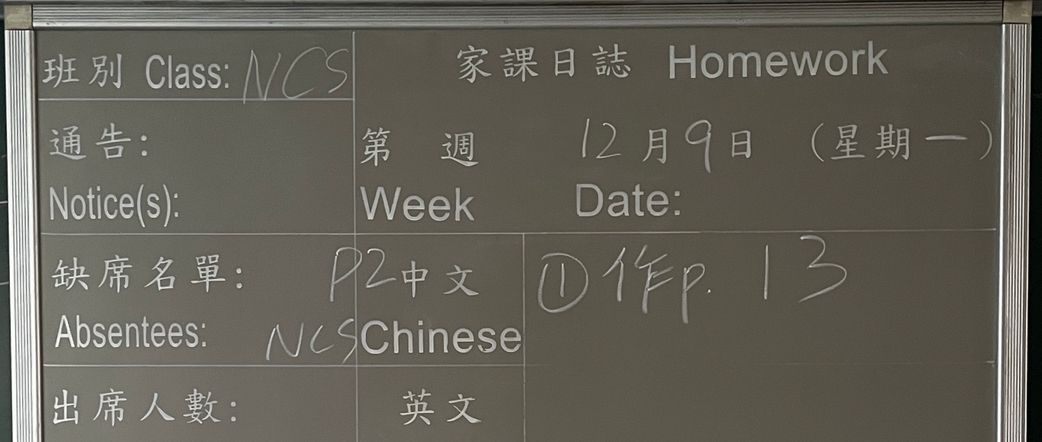 班別 Class: NCS
家課日誌 Homework
通告:
第 週 12月9日 (星期一)
Notice(s):
Week Date:
缺席名單:
P2中文 ①作p. 13
Absentees:
NCS Chinese
出席人數:
英文